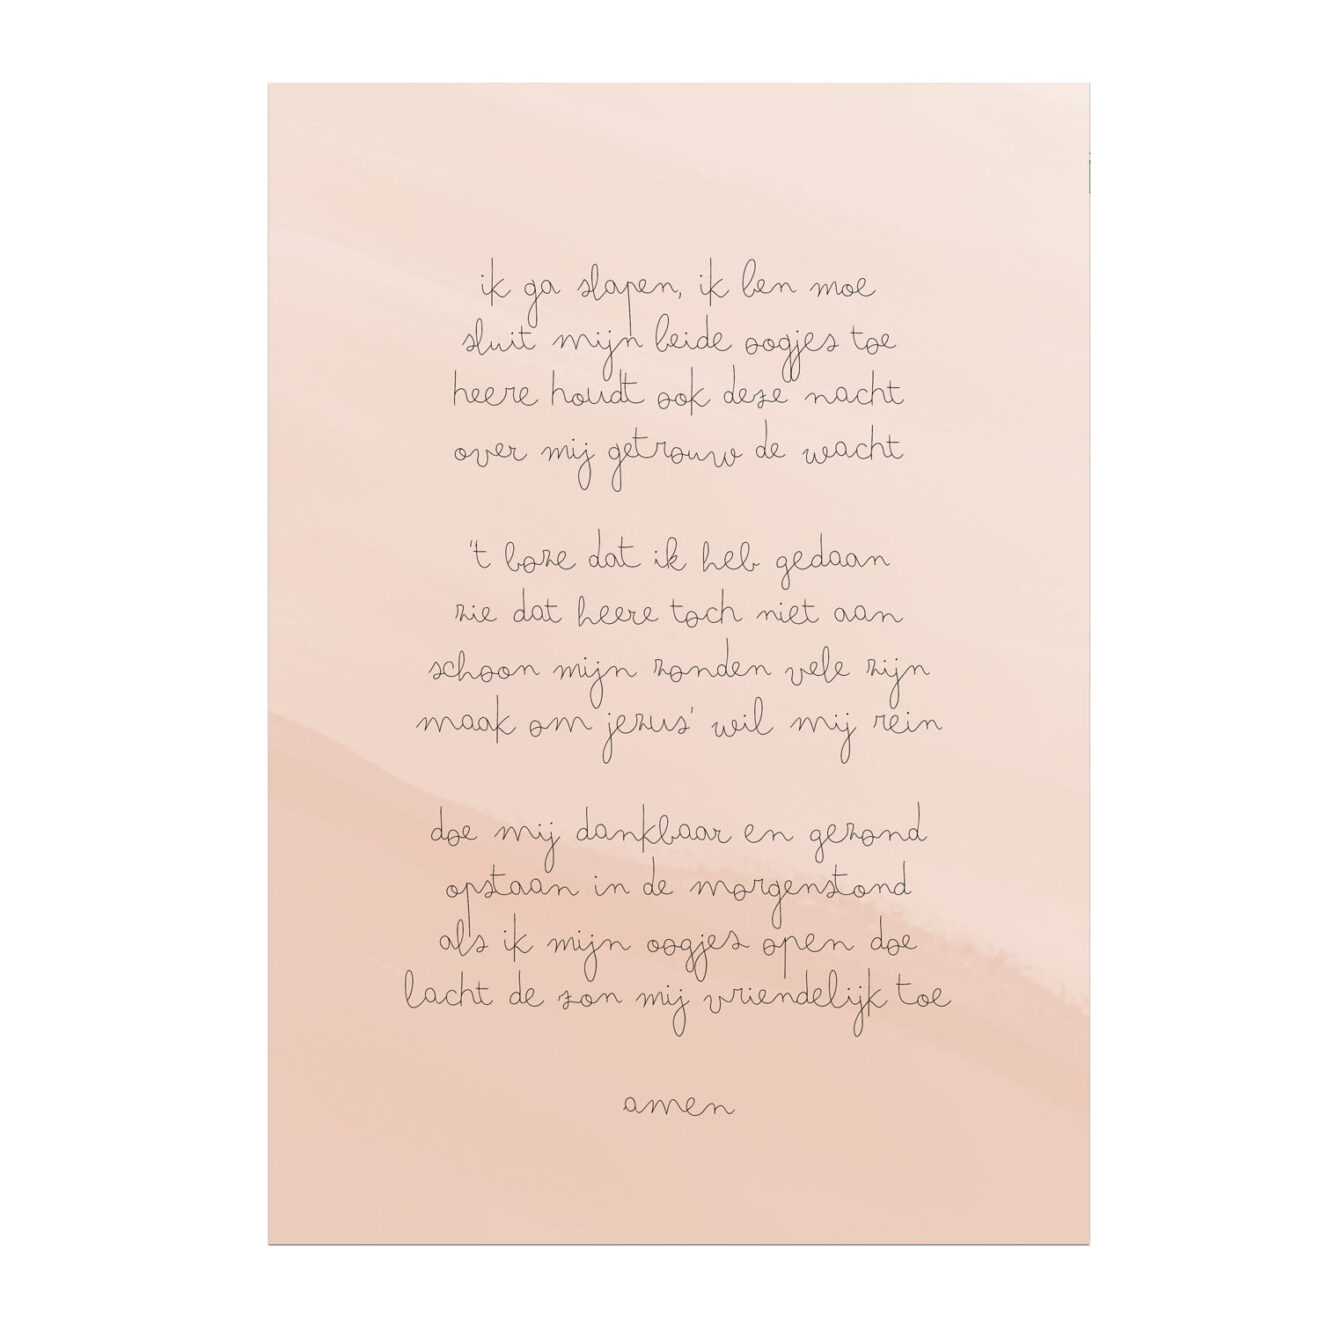 ik ga slapen, ik ben moe
sluit mijn beide oogjes toe
heere houdt ook deze nacht
over mij getrouw de wacht
't boze dat ik heb gedaan
zie dat heere toch niet aan
schoon mijn zonden vele zijn
maak om jezus' wil mij rein
doe mij dankbaar en gezond
opstaan in de morgenstond
als ik mijn oogjes open doe
lacht de zon mij vriendelijk toe
amen